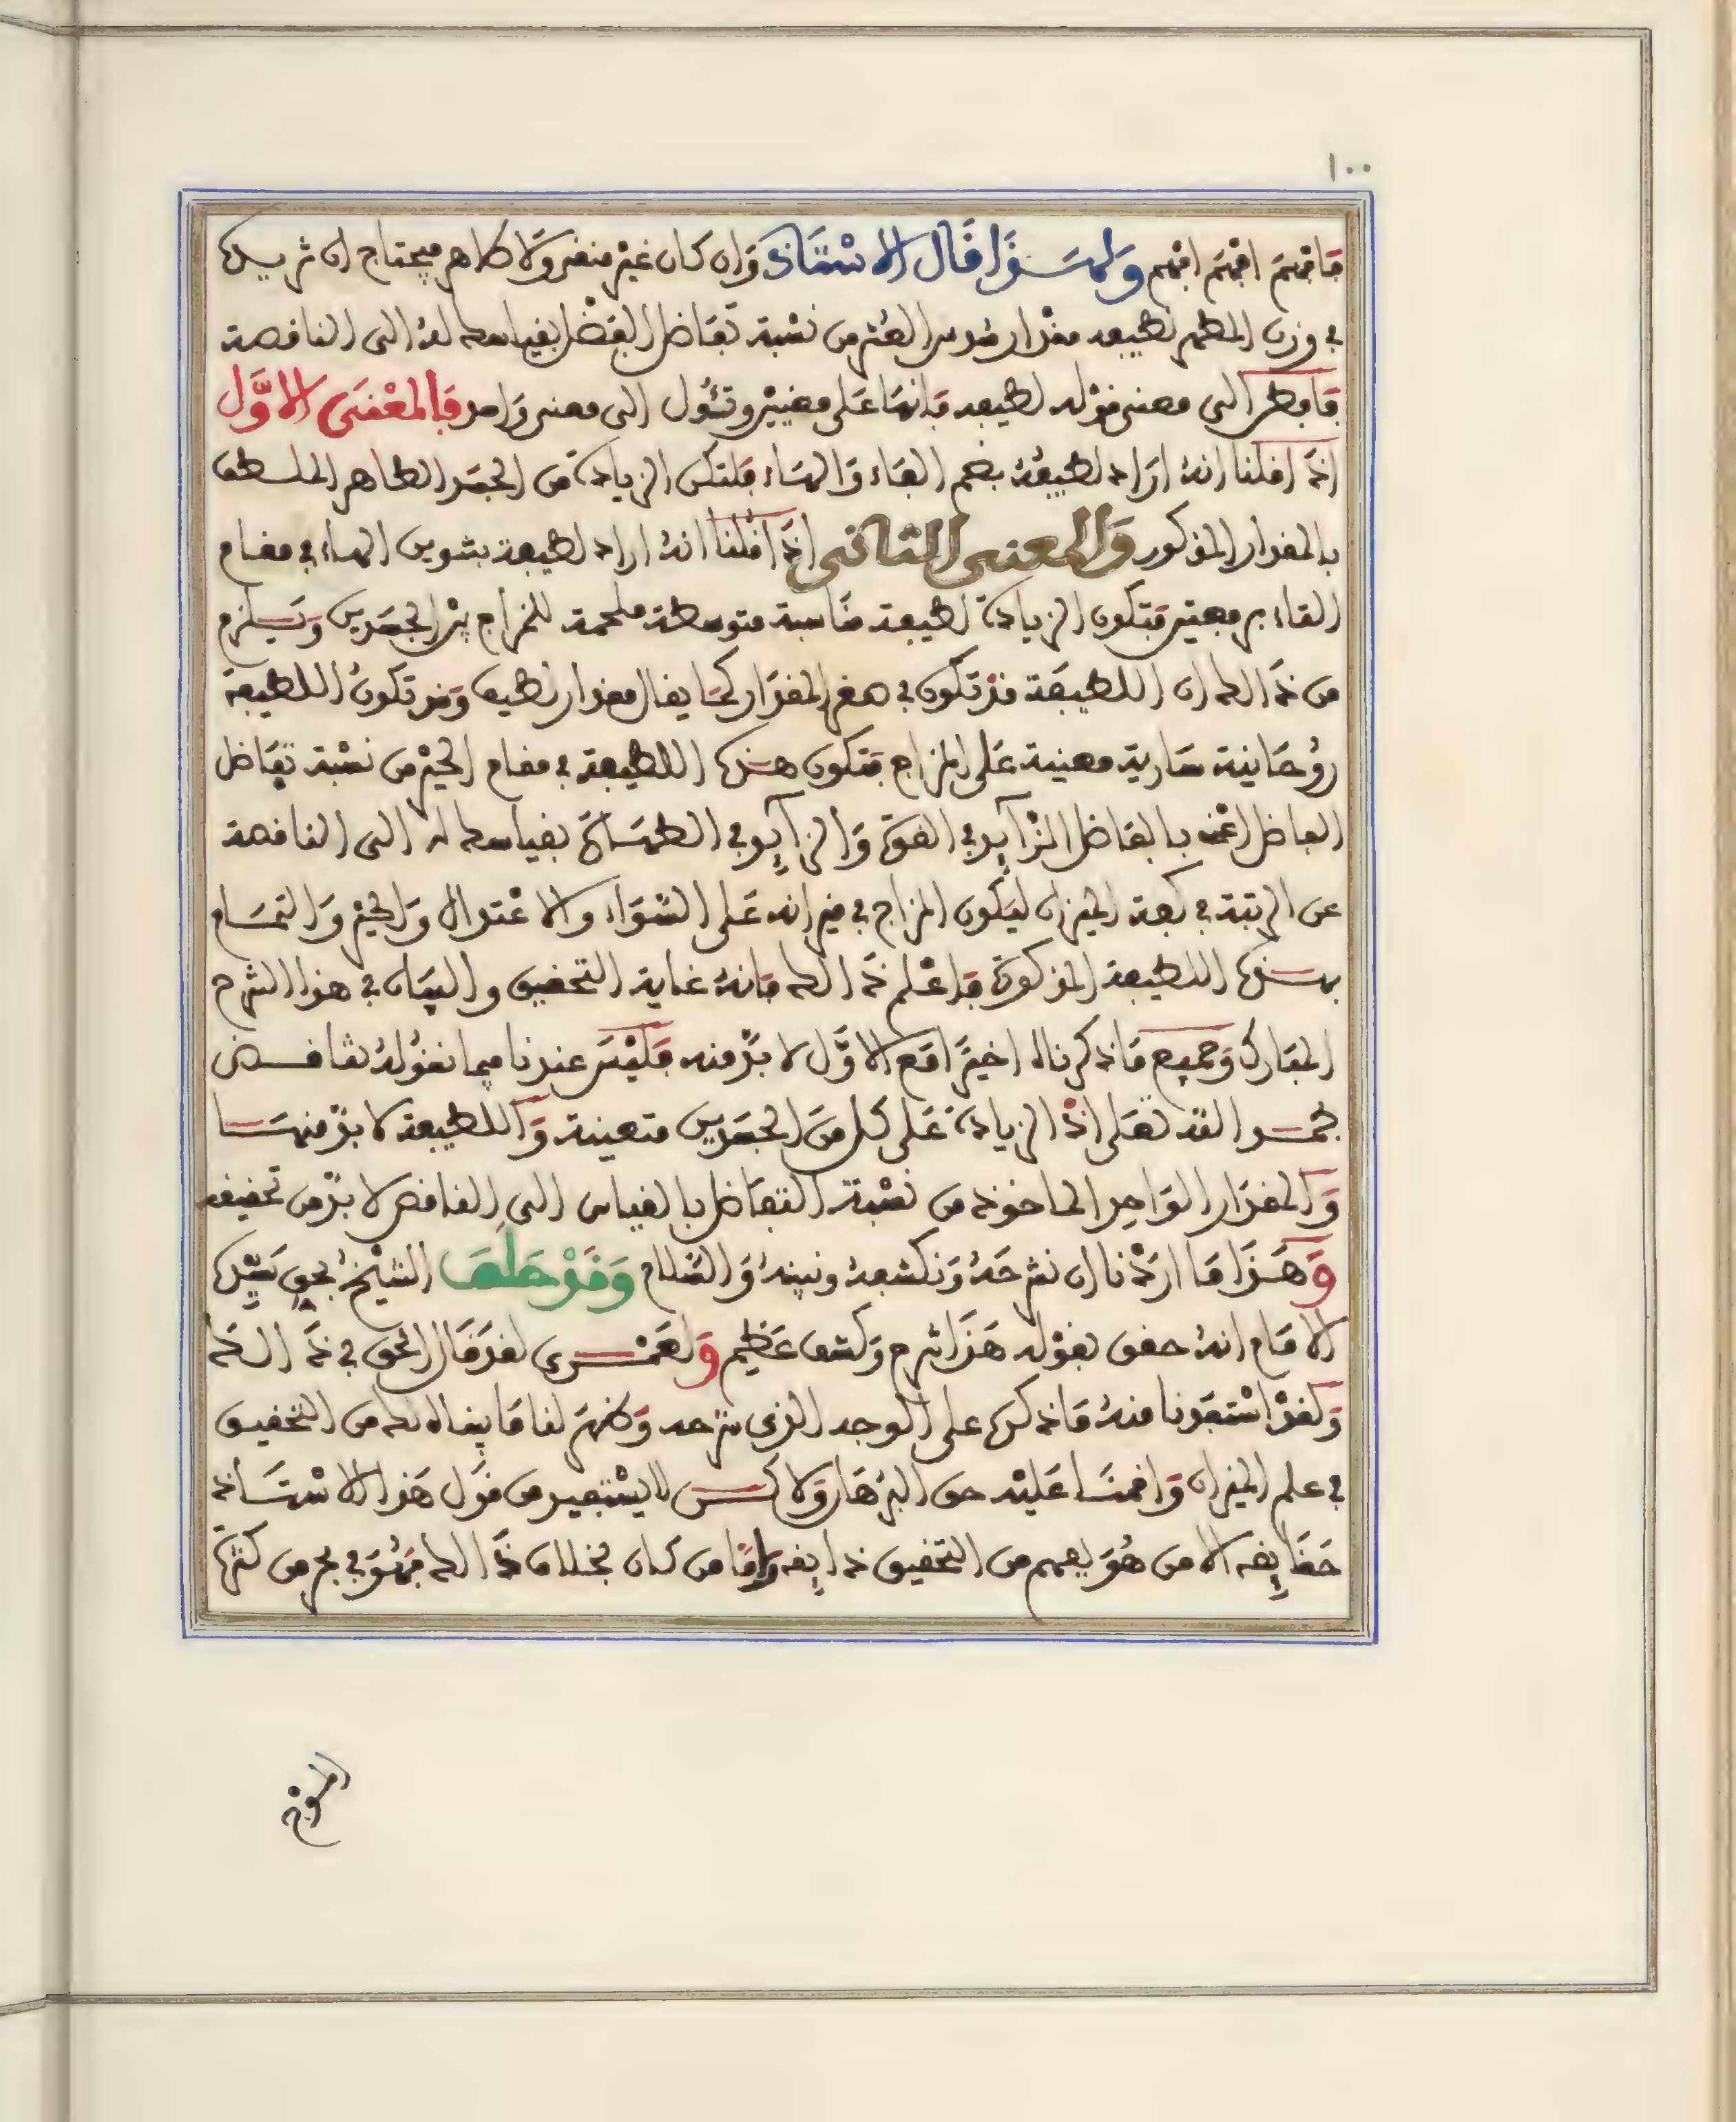 ١٠٠
فافهم افهم افهم ولهذا قال الاستاذ وان كان غير منفر ولا طاهر فيحتاج ان تزيده
في وزن المطهر لطيفه مقدار سدس العشر من نسبة تفاضل الفضل بقياسك له الى الناقصة
فانظر الى معنى قوله لطيفه فانها على معنيين وتئول الى معنى واحد فالمعنى الاول
اذا قلنا انه اراد لطيفه بضم الفاء والهاء فلتكن الزيادة من الجسد الطاهر الملطف
بالمقدار المذكور والمعنى الثاني اذا قلنا انه اراد لطيفة بتنوين الهاء في مقام
التاء برفعتين فتكون الزيادة لطيفة مناسبة متوسطة ملحمة للمزاج بين الجسدين ويلزم
من ذالك ان اللطيفة قد تكون في هذا المقدار كما يقال مقدار لطيف وقد تكون اللطيفة
روحانية سارية معينة على المزاج فتكون هذه اللطيفة في مقام الجزء من نسبة تفاضل
الفاضل اعني بالفاضل الزايد في القوة والزايد في الطهارة بقياسك له الى الناقصة
عن الرتبة في كفة الميزان ليكون المزاج في ميزانه على السواء والاعتدال والخير والتمام
بهذه اللطيفة المذكورة فاعلم ذالك فانه غاية التحقيق والبيان في هذا الشرح
المبارك وجميع ما ذكرناه اخيرا مع الاول لا بد منه فليس عندنا فيما نقوله تناقض
بحمد الله تعلى اذ الزيادة على كل من الجسدين متعينة واللطيفة لا بد منها
والمقدار الواحد الماخوذ من نسبة التفاضل بالقياس الى الناقص لا بد من تحقيقه
وهذا ما اردنا ان نشرحه ونكشفه ونبينه والسلام وقد حلف الشيخ بحق سيده
الامام انه حقق بقوله هذا شرح وكشف عظيم ولعمري لقد قال الحق في ذالك
ولقد استفدنا منه ما ذكره على الوجه الذي شرحه وظهر لنا ما بيناه لك من التحقيق
في علم الميزان واقمنا عليه حق البرهان ولاكن لا يستفيد من قول هذا الاستاذ
حقايقه الا من هو يفهم من التحقيق دقايقه واما من كان بخلاف ذالك فهو في بحر من كثرة
الموج